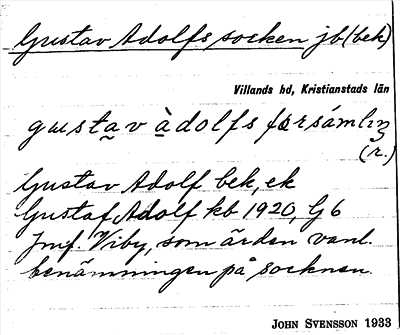 Gustav Adolfs socken jb (bek)
Villands hd, Kristianstads län
gustav àdolfs fɷrsámlɩŋ
(r.)
Gustav Adolf bek, ek
Gustaf Adolf kb 1920, G6
Jmf. Viby, som är den vanl.
benämningen på socknen.
JOHN SVENSSON 1933